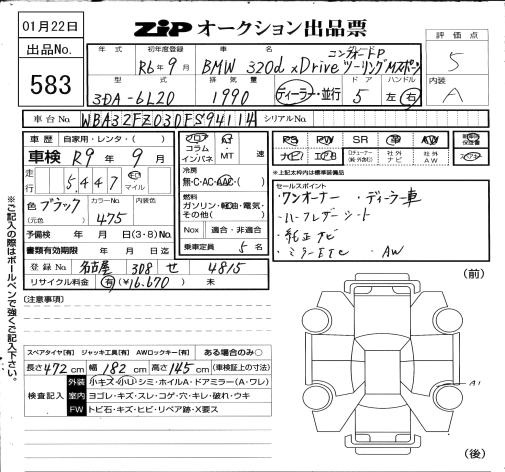 01月22日
ZiP オークション出品票
評価点
出品No.
583
年式
初年度登録
R6年9月
車名
BMW 320d xDrive
グレード
コンフォートP
ツーリングMスポーツ
5
型式
3DA-6L20
排気量
1990
ディーラー・並行
ドア
5
ハンドル
左 右
内装
A
車台No.
WBA32FZ030FS94114
シリアルNo.
車歴
自家用・レンタ・( )
車検 R9年9月
走行
5,447
km
マイル
色 ブラック
(元色)
カラーNo.
475
内装色
予備検 年 月 日(3・8)No.
書類有効期限 年 月 日迄
登録No. 名古屋 308 せ 4815
リサイクル料金 有(¥16,670) 未
フロア
コラム
インパネ
AT
・
MT
速
冷房
無・C・AC・AAC・( )
燃料
ガソリン・軽油・電気・
その他( )
Nox 適合・非適合
乗車定員 5名
PS
PW
SR
革
AW
ナビ
エアB
社外
ナビ
社外
AW
※上記太枠内は標準装備品
セールスポイント
・ワンオーナー ・ディーラー車
・ハーフレザーシート
・純正ナビ
・ミラーETC ・AW
(注意事項)
(前)
スペアタイヤ[有] ジャッキ工具[有] AWロックキー[有] ある場合のみ○
長さ472cm 幅182cm 高さ145cm (車検証上の寸法)
検査記入
外装 小キズ・小U・シミ・ホイルA・ドアミラー(A・ワレ)
室内 ヨゴレ・キズ・スレ・コゲ・穴・キレ・破れ・ウキ
FW トビ石・キズ・ヒビ・リペア跡・X要ス
A1
(後)
※ご記入の際はボールペンで強くご記入下さい。